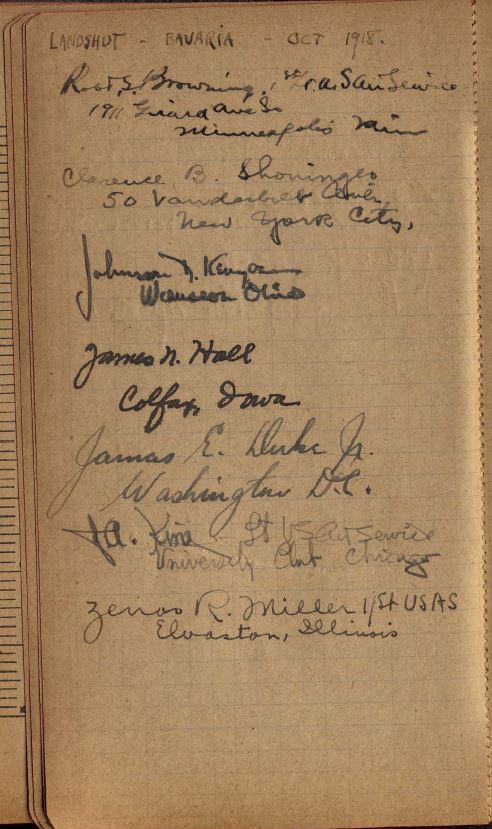 LANDSHUT - BAVARIA - OCT 1918.
Robt. S. Browning, 1st Lt. U.S. Air Service
1911 Girard Ave So
Minneapolis Minn
Clarence B. Shoninger
50 Vanderbilt Ave.,
New York City.
Johnson D. Kenyon
Wauseon Ohio
James N. Hall
Colfax, Iowa
James E. Duke Jr.
Washington D.C.
- Lt US Air Service
University Club Chicago
Zenos R. Miller 1/Lt USAS
Elvaston, Illinois